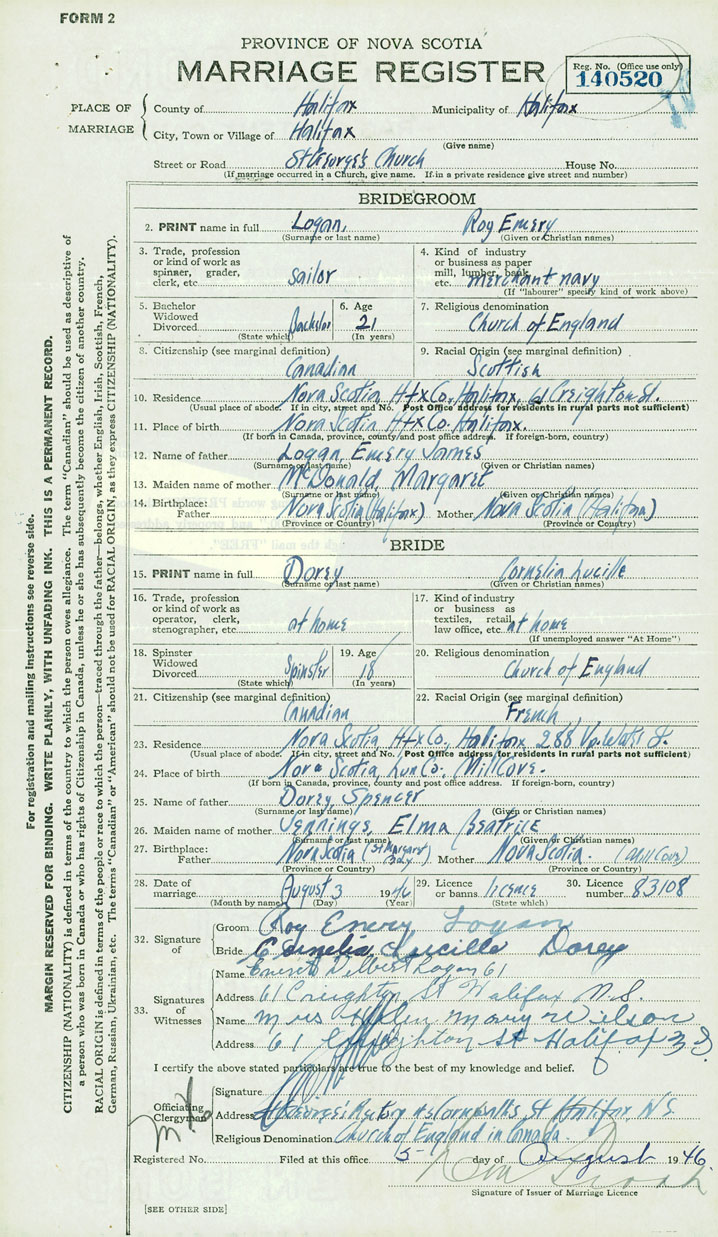 FORM 2
PROVINCE OF NOVA SCOTIA
MARRIAGE REGISTER
Reg. No. (Office use only)
140520
PLACE OF MARRIAGE
County of Halifax Municipality of Halifax
City, Town or Village of Halifax
(Give name)
Street or Road St George's Church House No.
(If marriage occurred in a Church, give name. If in a private residence give street and number)
BRIDEGROOM
2. PRINT name in full Logan, Roy Emery
(Surname or last name) (Given or Christian names)
3. Trade, profession or kind of work as spinner, grader, clerk, etc. sailor
4. Kind of industry or business as paper mill, lumber, bank, etc. merchant navy
(If "labourer" specify kind of work above)
5. Bachelor Widowed Divorced Bachelor
(State which)
6. Age 21
(In years)
7. Religious denomination
Church of England
8. Citizenship (see marginal definition)
Canadian
9. Racial Origin (see marginal definition)
Scottish
10. Residence Nova Scotia Hfx Co. Halifax, 61 Creighton St.
(Usual place of abode. If in city, street and No. Post Office address for residents in rural parts not sufficient)
11. Place of birth Nova Scotia Hfx Co. Halifax.
(If born in Canada, province, county and post office address. If foreign-born, country)
12. Name of father Logan, Emery James
(Surname or last name) (Given or Christian names)
13. Maiden name of mother McDonald, Margaret
(Surname or last name) (Given or Christian names)
14. Birthplace: Father Nova Scotia (Halifax) Mother Nova Scotia (Halifax)
(Province or Country) (Province or Country)
BRIDE
15. PRINT name in full Dorey Cornelia Lucille
(Surname or last name) (Given or Christian names)
16. Trade, profession or kind of work as operator, clerk, stenographer, etc. at home
17. Kind of industry or business as textiles, retail, law office, etc. at home
(If unemployed answer "At Home")
18. Spinster Widowed Divorced Spinster
(State which)
19. Age 18
(In years)
20. Religious denomination
Church of England
21. Citizenship (see marginal definition)
Canadian
22. Racial Origin (see marginal definition)
French
23. Residence Nova Scotia Hfx Co, Halifax 288 Up. Water St
(Usual place of abode. If in city, street and No. Post Office address for residents in rural parts not sufficient)
24. Place of birth Nova Scotia, Lun Co. Mill Cove.
(If born in Canada, province, county and post office address. If foreign-born, country)
25. Name of father Dorey, Spencer
(Surname or last name) (Given or Christian names)
26. Maiden name of mother Jennings, Elma Beatrice
(Surname or last name) (Given or Christian names)
27. Birthplace: Father Nova Scotia (St Margaret Bay) Mother Nova Scotia. (Mill Cove)
(Province or Country) (Province or Country)
28. Date of marriage August 3 1946
(Month by name) (Day) (Year)
29. Licence or banns licence
(State which)
30. Licence number 83108
32. Signature of
Groom Roy Emery Logan
Bride Cornelia Lucille Dorey
33. Signatures of Witnesses
Name Ernest Delbert Logan 61
Address 61 Creighton St Halifax N.S.
Name Mrs Helen Mary Wilson
Address 61 Creighton St Halifax N S
I certify the above stated particulars are true to the best of my knowledge and belief.
Officiating Clergyman
Signature
Address St George's Rectory Cornwallis St Halifax N.S.
Religious Denomination Church of England in Canada.
Registered No. Filed at this office 5 day of August 1946
Signature of Issuer of Marriage Licence
[SEE OTHER SIDE]
For registration and mailing instructions see reverse side.
MARGIN RESERVED FOR BINDING. WRITE PLAINLY, WITH UNFADING INK. THIS IS A PERMANENT RECORD.
CITIZENSHIP (NATIONALITY) is defined in terms of the country to which the person owes allegiance. The term "Canadian" should be used as descriptive of
a person who was born in Canada or who has rights of Citizenship in Canada, unless he or she has subsequently become the citizen of another country.
RACIAL ORIGIN is defined in terms of the people or race to which the person—traced through the father—belongs, whether English, Irish, Scottish, French,
German, Russian, Ukrainian, etc. The terms "Canadian" or "American" should not be used for RACIAL ORIGIN, as they express CITIZENSHIP (NATIONALITY).